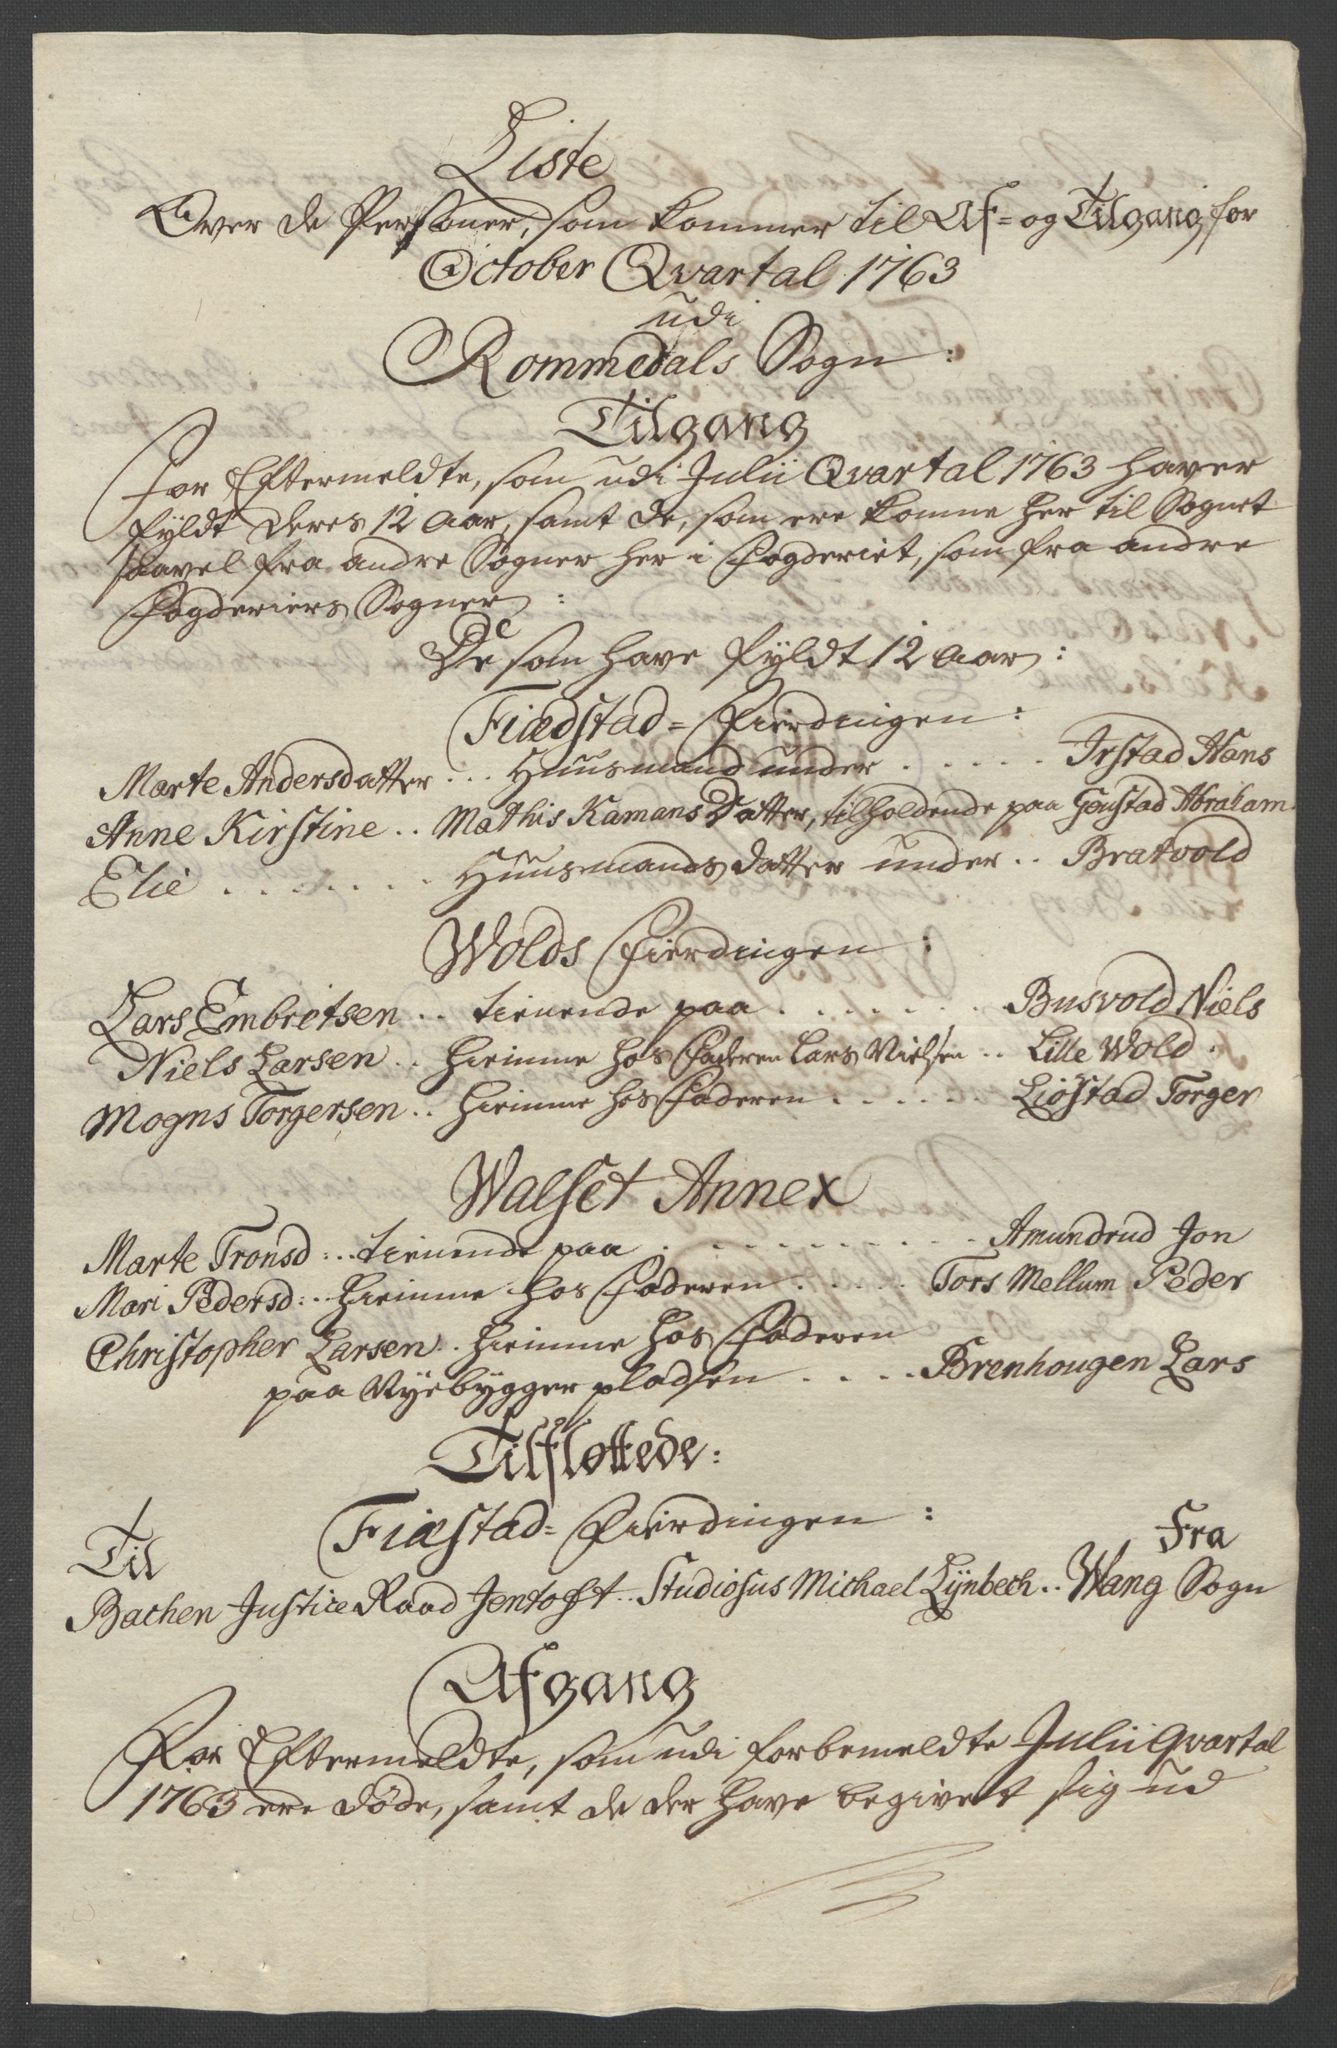 Liste
Over de Personer, som kommer til Af= og Tilgang for
October Qvartal 1763
udi
Rommedals Sogn:
Tilgang
For Eftermeldte, som udi Julii Qvartal 1763 haver
fyldt deres 12 Aar, samt de, som ere komne her til Sognet
saavel fra andre Sogner her i Fogderiet, som fra andre
Fogderiers Sogner:
De som have fyldt 12 Aar:
Fiædstad= Fierdingen:
Marte Andersdatter... Huusmand under..... Irstad Hans
Anne Kirstine.. Mathis Kamans Datter, tilholdende paa Genstad Abraham
Elie........ Huusmands datter under.. Bratvold
Wolds Fierdingen:
Lars Embretsen.. tienende paa....... Busvold Niels
Niels Larsen.. hiemme hos Faderen Lars Nielsen.. Lille Wold.
Mogns Torgersen.. hiemme hos Faderen...... Liøstad Torger
Walset Annex
Marte Tronsd:.. tienende paa.......... Amundrud Jon
Mari Pedersd:.. hiemme hos Faderen..... Tors Mellum Peder
Christopher Larsen.. hiemme hos Faderen
paa Nyebygger pladsen..... Brenhougen Lars
Tilfløttede:
Fiæstad= Fierdingen:
Til Fra
Bachen Justice Raad Jentoft.. Studiosus Michael Lynbech.. Wang Sogn
Afgang
For Eftermeldte, som udi forbemeldte Julii Qvartal
1763 ere døde, samt de der have begivet sig ud